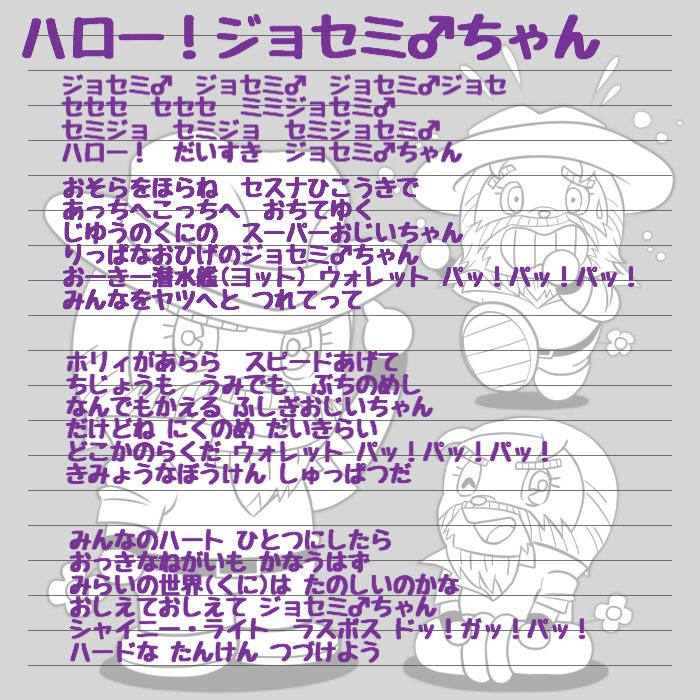 ハロー！ジョセミ♂ちゃん
ジョセミ♂　ジョセミ♂　ジョセミ♂ジョセ
セセセ　セセセ　ミミジョセミ♂
セミジョ　セミジョ　セミジョセミ♂
ハロー！　だいすき　ジョセミ♂ちゃん
おそらをほらね　セスナひこうきで
あっちへこっちへ　おちてゆく
じゆうのくにの　スーパーおじいちゃん
りっぱなおひげのジョセミ♂ちゃん
おーきー潜水艦(ヨット) ウォレット パッ！パッ！パッ！
みんなをヤツへと つれてって
ホリィがあらら　スピードあげて
ちじょうも　うみでも　ぶちのめし
なんでもかえる ふしぎおじいちゃん
だけどね にくのめ だいきらい
どこかのらくだ ウォレット パッ！パッ！パッ！
きみょうなぼうけん しゅっぱつだ
みんなのハート ひとつにしたら
おっきなねがいも かなうはず
みらいの世界(くに)は たのしいのかな
おしえておしえて ジョセミ♂ちゃん
シャイニー・ライト　ラスボス ドッ！ガッ！パッ！
ハードな たんけん つづけよう